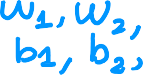 w₁, w₂,
b1, b₂,